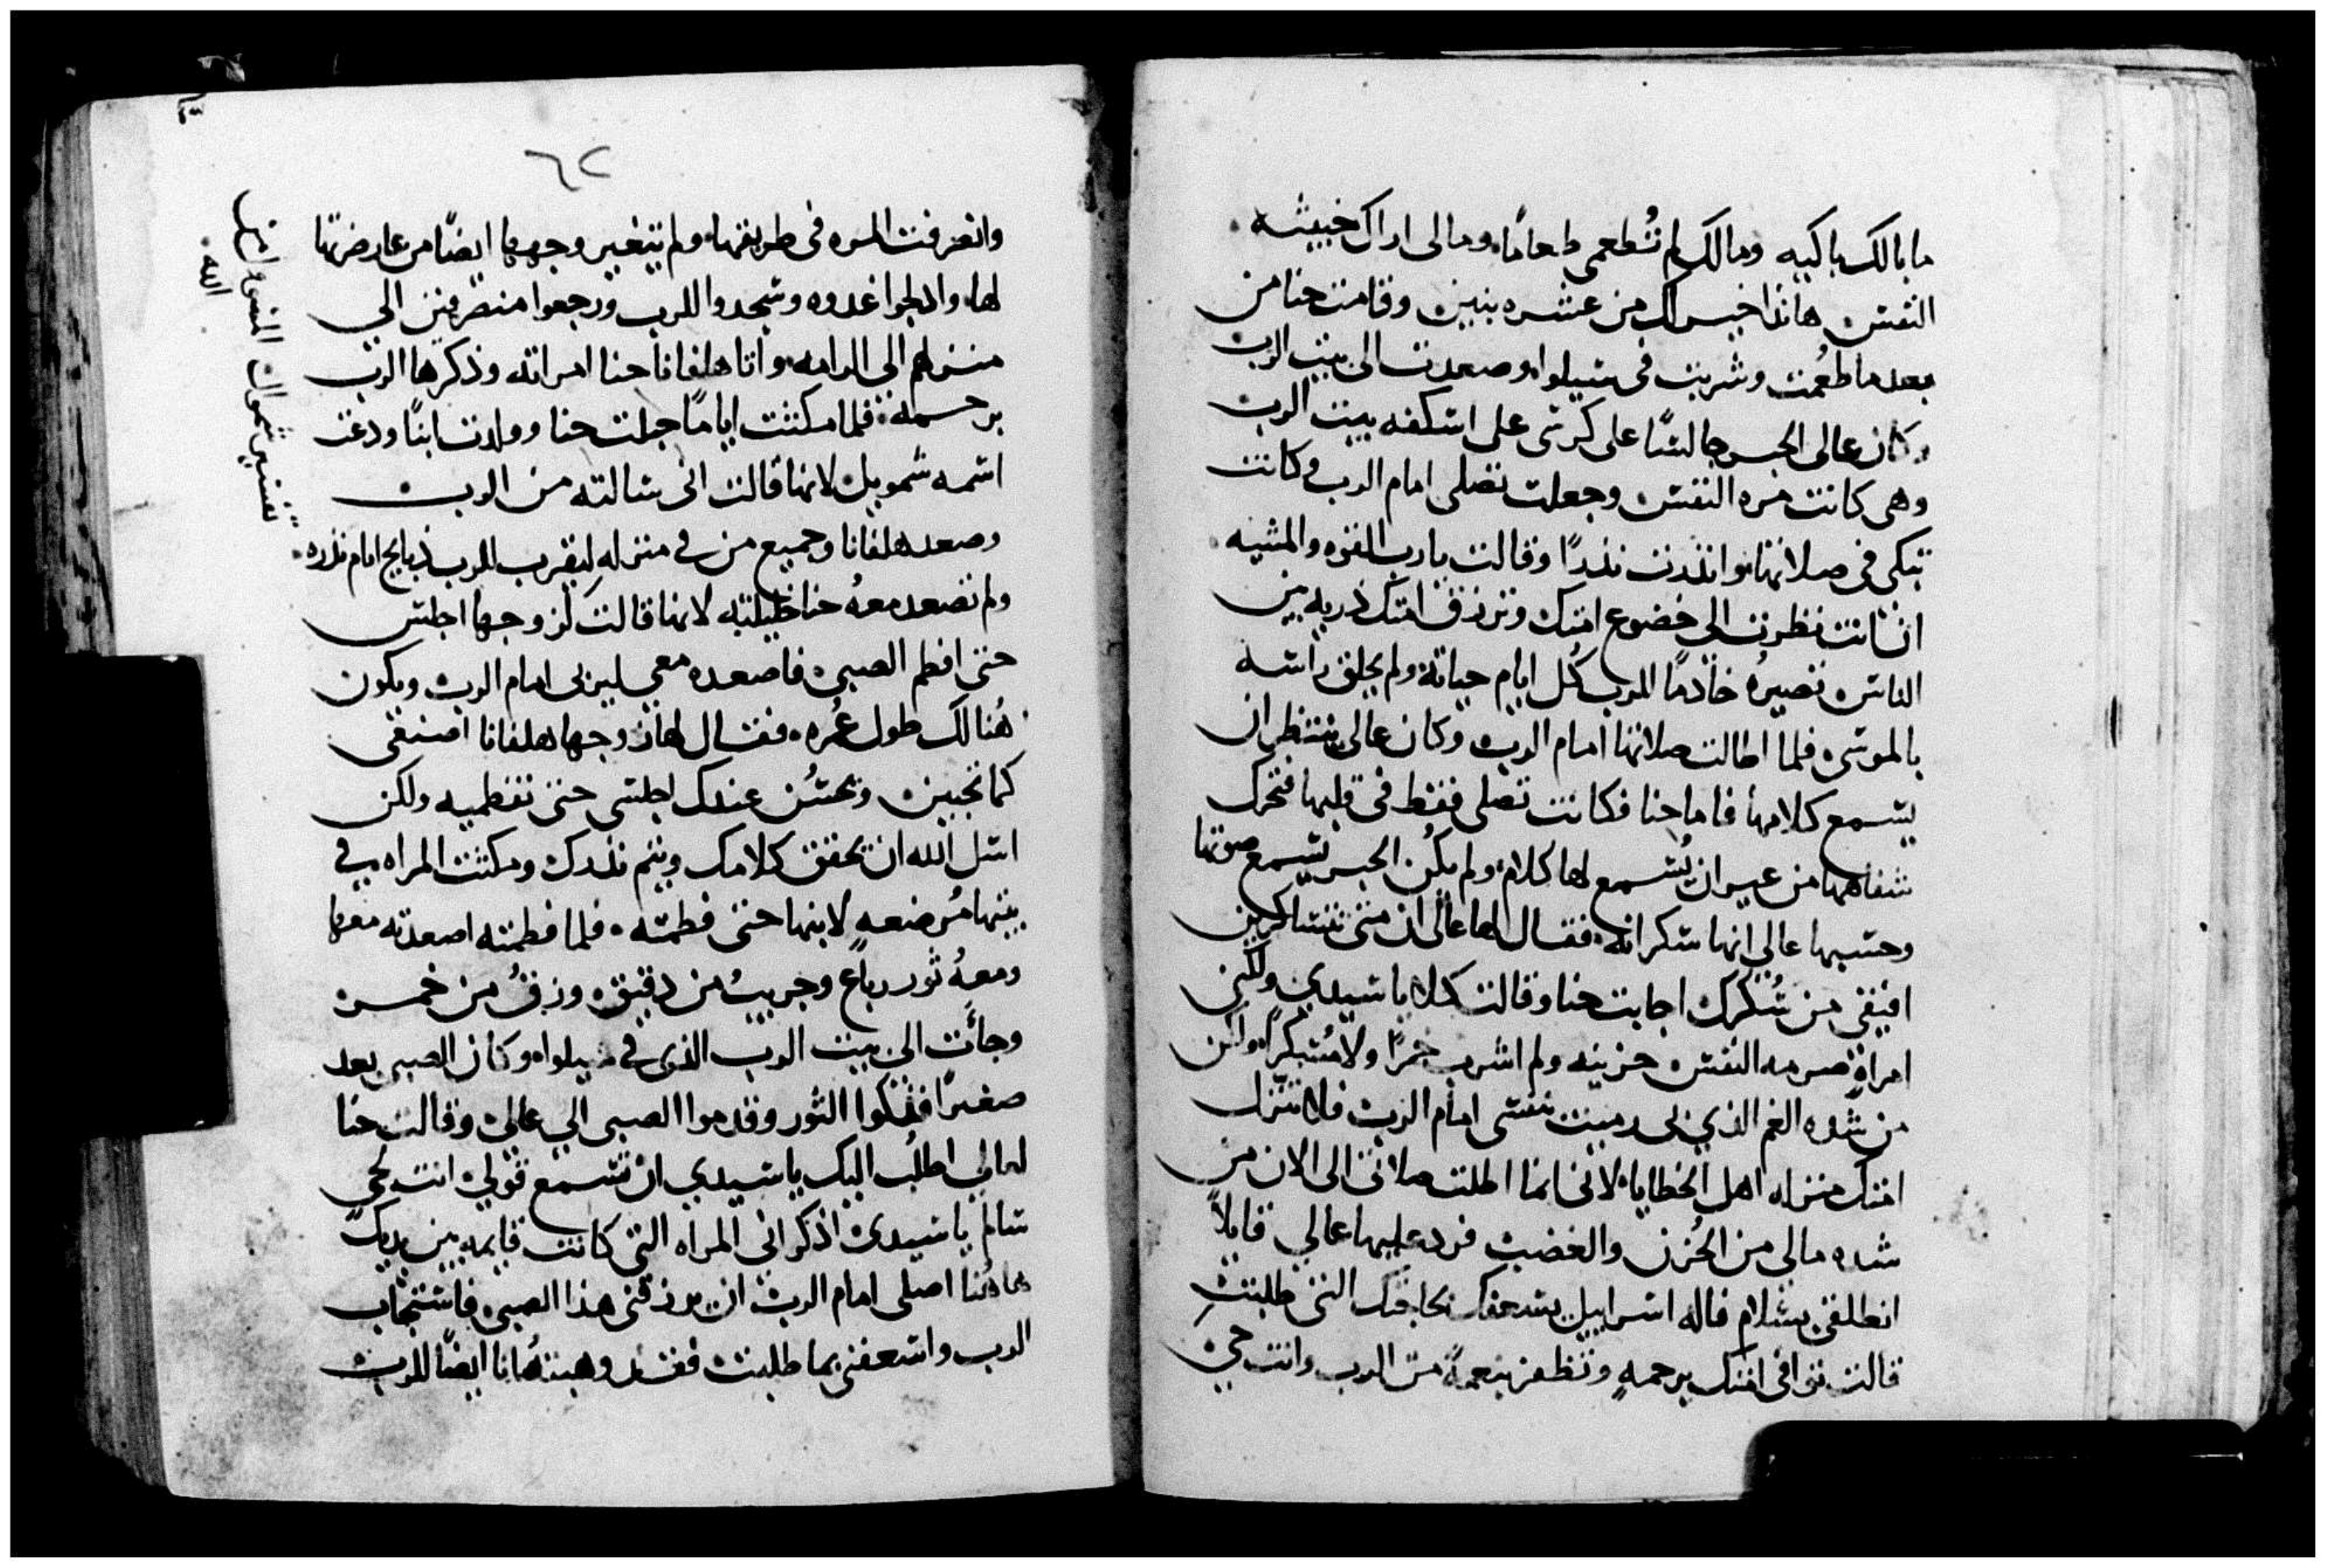 ما بالك باكيه ومالك لم تُطعمي طعامًا ومالي اراك خبيثه
النفس هانذا اخير لك من عشره بنين وقامت حنا من
بعد ما طعمت وشربت في شيلوا وصعدت الى بيت الرب
وكان عالى الحبر جالسًا على كرسي على اسكفه بيت الرب
وهي كانت مره النفس وجعلت تصلي امام الرب وكانت
تبكي في صلاتها وانذرت نذرًا وقالت يا رب القوه والمشيه
ان انت نظرت الي خضوع امتك وترزق امتك ذريه بين
الناس نصيرهُ خادمًا للرب كُل ايام حياته ولم يحلق راسه
بالموسى فلما اطالت صلاتها امام الرب وكان عالي ينتظر ان
يسمع كلامها فاما حنا فكانت تصلي فقط في قلبها فتحرك
شفاهها من غير ان يُسمع لها كلام ولم يكُن الحبر يسمع صوتها
وحسبها عالي انها سكرانه فقال لها عالى ان متى تتساكرين
افيقي من سُكرك اجابت حنا وقالت كلا يا سيدي ولكني
امراةٍ صرمه النفس حزينه ولم اشرب خمرًا ولا مُسكرًا ولكن
من شده الغم الذي بي رميت نفسي امام الرب فلا تنزل
امتك منزله اهل الخطايا لاني انما اطلت صلاتي الى الان من
شده مالي من الحُزن والغضب فرد عليها عالي قايلاً
انطلقي بسلام فاله اسراييل يسعفك بحاجتك التي طلبتِ
قالت توافى امتك برحمهٍ وتظفر بنعمةً من الرب وانت حي
٦٢
وانصرفت المره في طريقها ولم يتغير وجهها ايضًا من عارضتها
لها وادلجوا غدوه وسجدوا للرب ورجعوا منصرفين الي
منزلهم الى الرامه واتا هلقانا حنا امراته وذكرها الرب
برحمته فلما مكثت ايامًا حبلت حنا وولدت ابنًا ودعت
اسمه شمويل لانها قالت اني سالته من الرب
وصعد هلقانا وجميع من في منزله ليقرب للرب ذبايح امام نذره
ولم تصعد معهُ حنا خليلته لانها قالت لزوجها اجلس
حتى افطم الصبي فاصعده معي ليربى امام الرب ويكون
هُنالك طول عُمره فقال لها زوجها هلقانا اصنعي
كما تحبين وتحسُن عندك اجلسي حتى تفطميه ولكن
اسل الله ان يحقق كلامك ويتم نذرك ومكثت المراه في
بيتها مُرضعهٍ لابنها حتى فطمته فلما فطمته اصعدته معها
ومعهُ ثور رباع وجريبُ من دقيق وزقُ من خمر
وجأت الى بيت الرب الذي في شيلوا وكان الصبي بعد
صغيرًا فذكوا الثور وقدموا الصبي الي عالي وقالت حنا
لعالي اطلُب اليك يا سيدي ان تسمع قولي انت لحي
سالم يا سيدي اذكر اني المراه التي كانت قايمه بين يديك
هاهُنا اصلي امام الرب ان يرزقني هذا الصبي فاستجاب
الرب واسعفني بما طلبت فقد وهبتهُ انا ايضًا للرب
تفسير شموال
الله